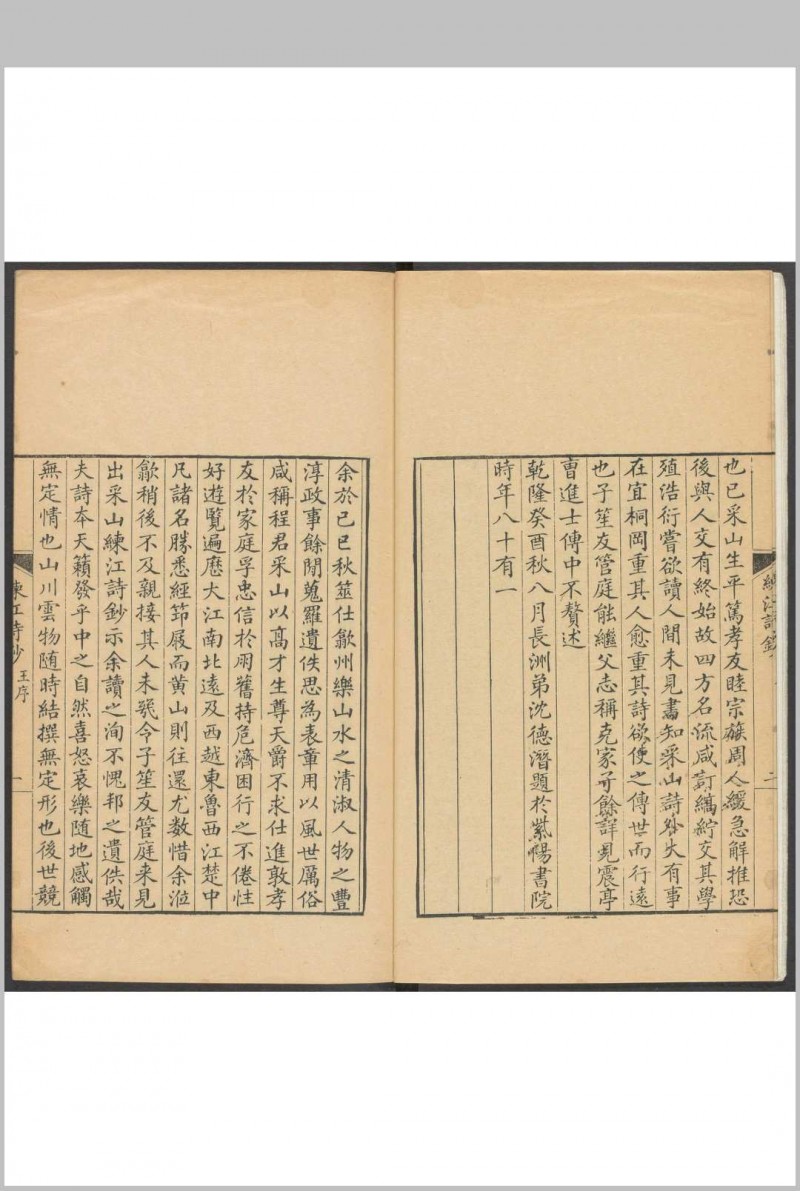 也已采山生平篤孝友睦宗族周人緩急解推恐
後與人交有終始故四方名流咸訂縞紵交其學
殖浩衍嘗欲讀人間未見書知采山詩鈔失有事
在宜桐岡重其人愈重其詩欲使之傳世而行遠
也子笙友管庭能繼父志稱克家子餘詳見震亭
曹進士傳中不贅述
乾隆癸酉秋八月長洲弟沈德潛題於紫陽書院
時年八十有一
練江詩鈔
二
余於己巳秋筮仕歙州樂山水之清淑人物之豐
淳政事餘閒蒐羅遺佚思為表章用以風世厲俗
咸稱程君采山以高才生尊天爵不求仕進敦孝
友於家庭孚忠信於朋舊持危濟困行之不倦性
好遊覽遍歷大江南北遠及西越東魯西江楚中
凡諸名勝悉經笻屐而黃山則往還尤數惜余涖
歙稍後不及親接其人未幾令子笙友管庭來見
出采山練江詩鈔示余讀之洵不愧邦之遺佚哉
夫詩本天籟發乎中之自然喜怒哀樂随地感觸
無定情也山川雲物随時結撰無定形也後世競
練江詩鈔
王序
一